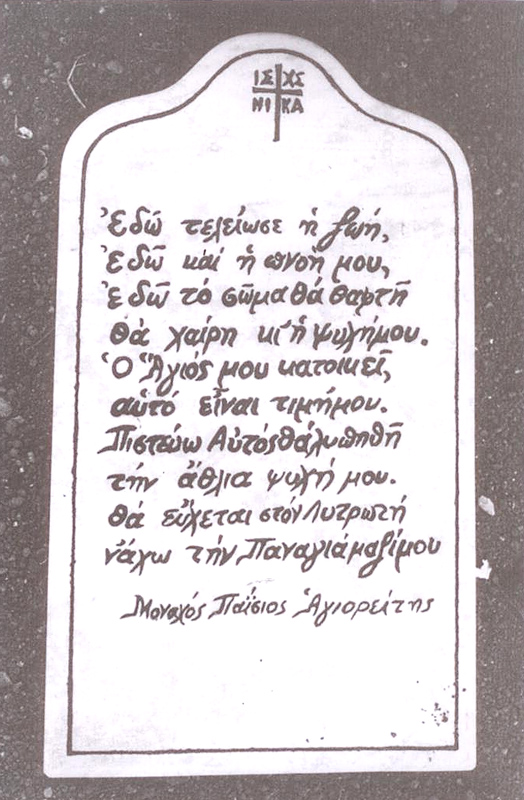 ΙΣ ΧΣ
ΝΙ ΚΑ
Ἐδῶ τελείωσε ἡ ζωή,
Ἐδῶ καί ἡ πνοή μου,
Ἐδῶ τό σῶμα θά θαφτῆ
θά χαίρη κι ἡ ψυχή μου.
Ὁ Ἅγιός μου κατοικεῖ,
αὐτό εἶναι τιμή μου.
Πιστεύω Αὐτός θά λυπηθῆ
τήν ἄθλια ψυχή μου.
θά εὔχεται στόν Λυτρωτή
νἄχω τήν Παναγιά μαζί μου
Μοναχός Παΐσιος Ἁγιορείτης